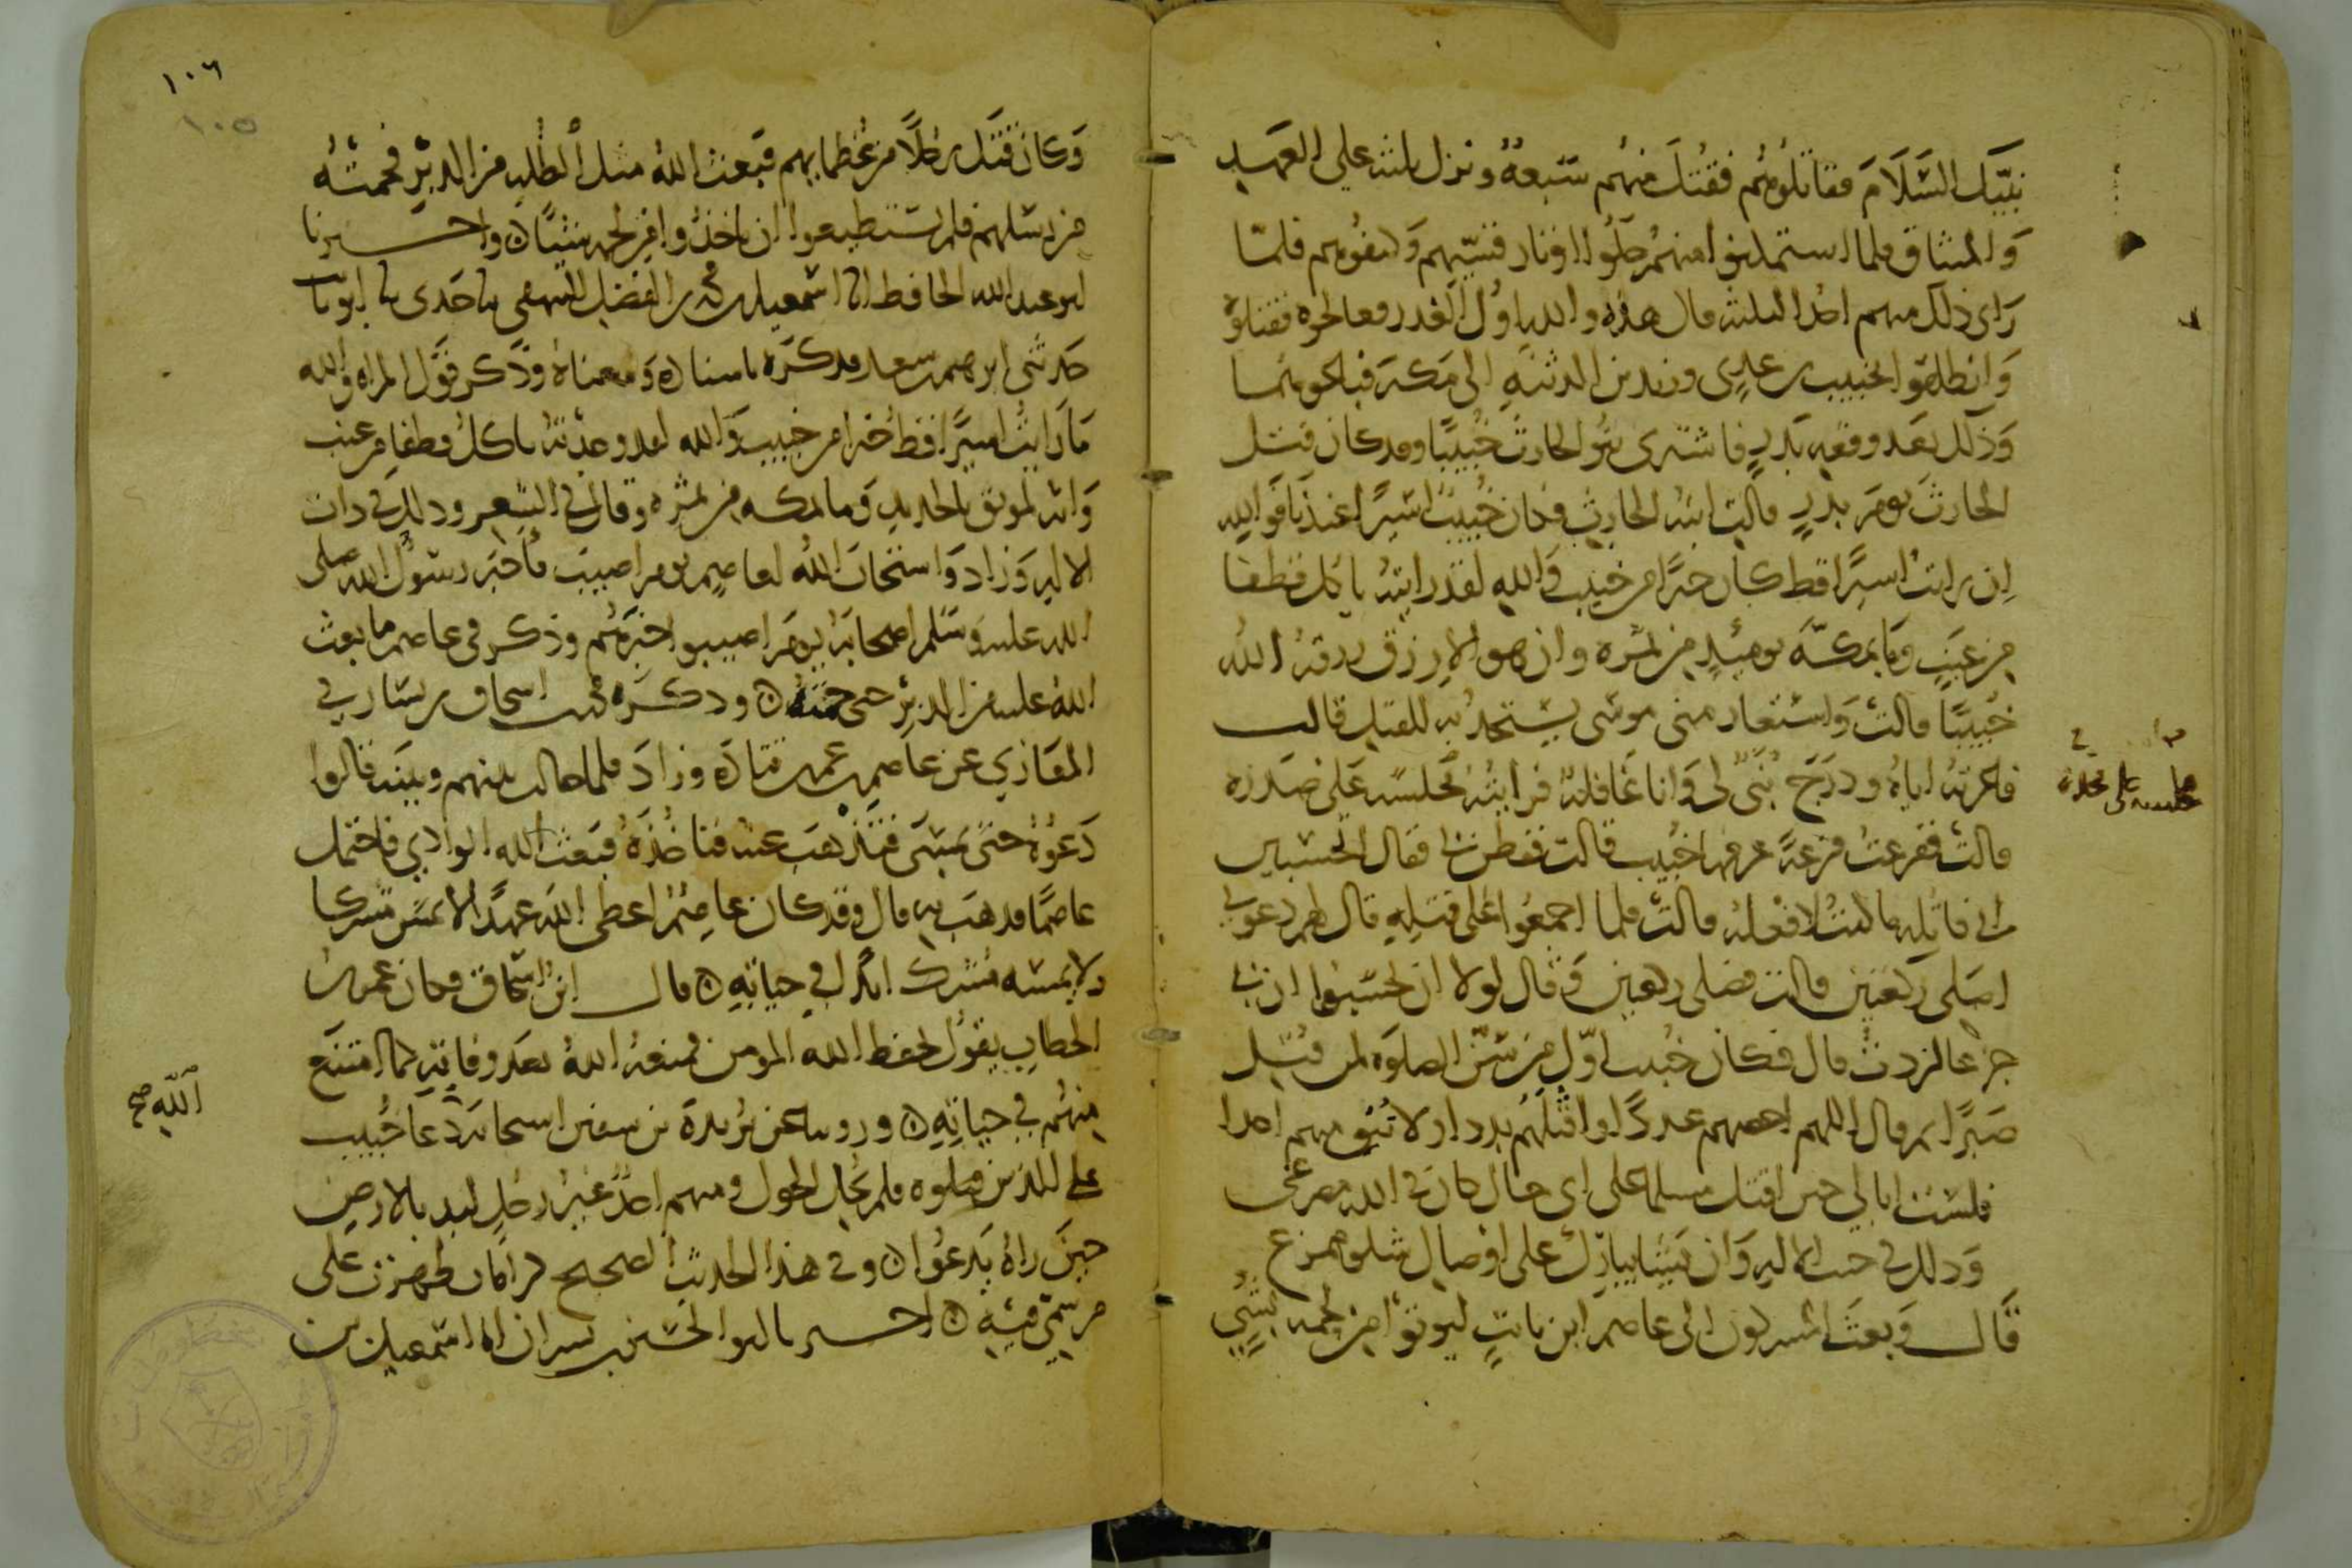 نبيك السلام فقاتلوهم فقتل منهم سبعة ونزل ثلثة على العهد
والميثاق فلما استمكنوا منهم حلوا اوتار قسيهم وكتفوهم فلما
راى ذلك منهم احد الثلثة قال هذا والله اول الغدر فعالجوه فقتلوه
وانطلقوا بخبيب بن عدي وزيد بن الدثنة الى مكة فباعوهما
وذلك بعد وقعة بدر فاشترى بنو الحارث خبيبا وقد كان قتل
الحارث يوم بدر قالت ابنة الحارث فكان خبيب اسيرا عندنا فوالله
ان رايت اسيرا قط كان خيرا من خبيب والله لقد رايته ياكل قطفا
من عنب وما بمكة يومئذ من ثمرة وان هو الا رزق رزقه الله
خبيبا قالت واستعار مني موسى يستحد به للقتل قالت
فاعرته اياه ودرج بني لي وانا غافلة فرايته مجلسه على صدره
قالت ففزعت فزعة عرفها خبيب قالت ففطن بي فقال اتحسبين
اني قاتله ما كنت لافعله قالت فلما اجمعوا على قتله قال لهم دعوني
اصلي ركعتين قالت فصلى ركعتين وقال لولا ان تحسبوا ان بي
جزعا لزدت قال فكان خبيب اول من سن الصلوة لمن قتل
صبرا ثم قال اللهم احصهم عددا واقتلهم بددا ولا تبق منهم احدا
فلست ابالي حين اقتل مسلما على اى حال كان في الله مصرعي
وذلك في جنب الاله وان يشا يبارك على اوصال شلو ممزع
قال وبعث المشركون الى عاصم ابن ثابت ليوتوا من لحمه بشي
١٠٦
١٠٥
وكان قتل رجلا من عظمايهم فبعث الله مثل الظلة من الدبر فحمته
من رسلهم فلم يستطيعوا ان ياخذوا من لحمه شيئا ٥ واخبرنا
ابو عبد الله الحافظ انا اسمعيل بن محمد بن الفضل البيهقي نا جدي نا ابو ثابت
حدثني ابرهيم بن سعد فذكره باسناده ومعناه وذكر قول المراة والله
ما رايت اسيرا قط خيرا من خبيب والله لقد وجدته ياكل قطفا من عنب
وانه لموثق بالحديد وما بمكة من ثمرة وقال في الشعر وذلك في ذات
الاله وزاد واستجاب الله لعاصم يوم اصيب فاخبر رسول الله صلى
الله عليه وسلم اصحابه يوم اصيبوا خبرهم وذكر في عاصم ما بعث
الله عليه من الدبر حتى حمته ٥ وذكره محمد بن اسحاق بن يسار في
المغازي عن عاصم بن عمر بن قتادة وزاد فلما حالت بينهم وبينه قالوا
دعوه حتى يمسي فتذهب عنه فناخذه فبعث الله الوادي فاحتمل
عاصما فذهب به قال وقد كان عاصم اعطى الله عهدا لا يمس مشركا
ولا يمسه مشرك ابدا في حياته ٥ قال ابن اسحاق فكان عمر بن
الخطاب يقول يحفظ الله المومن فمنعه الله بعد وفاته كما امتنع
منهم في حياته ٥ وروينا عن بريدة بن سفين استجابة دعا خبيب
الله صح
على الذين قتلوه فلم يحل الحول ومنهم احد غير رجل لبد بالارض
حين راه يدعوا ٥ وفي هذا الحديث الصحيح كرامات ظهرت على
من سمي فيه ٥ اخبرنا ابو الحسين بن بشران انا اسمعيل بن